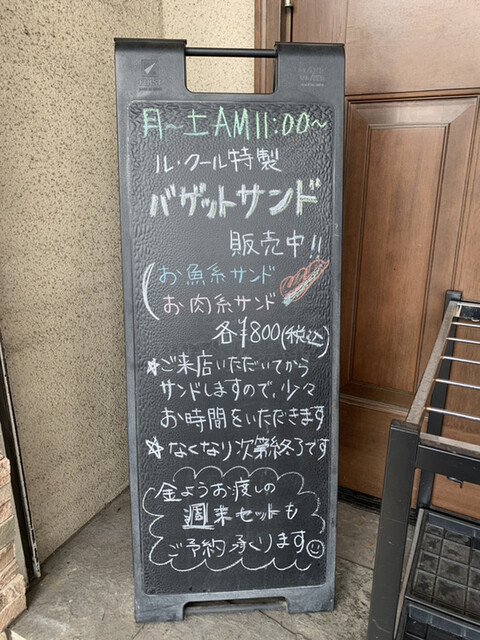 月〜土 AM11:00〜
ル・クール特製
バゲットサンド
販売中!!
お魚系サンド
お肉系サンド
各¥800(税込)
★ご来店いただいてから
サンドしますので、少々
お時間をいただきます
★なくなり次第終了です
金ようお渡しの
週末セットも
ご予約承ります☺